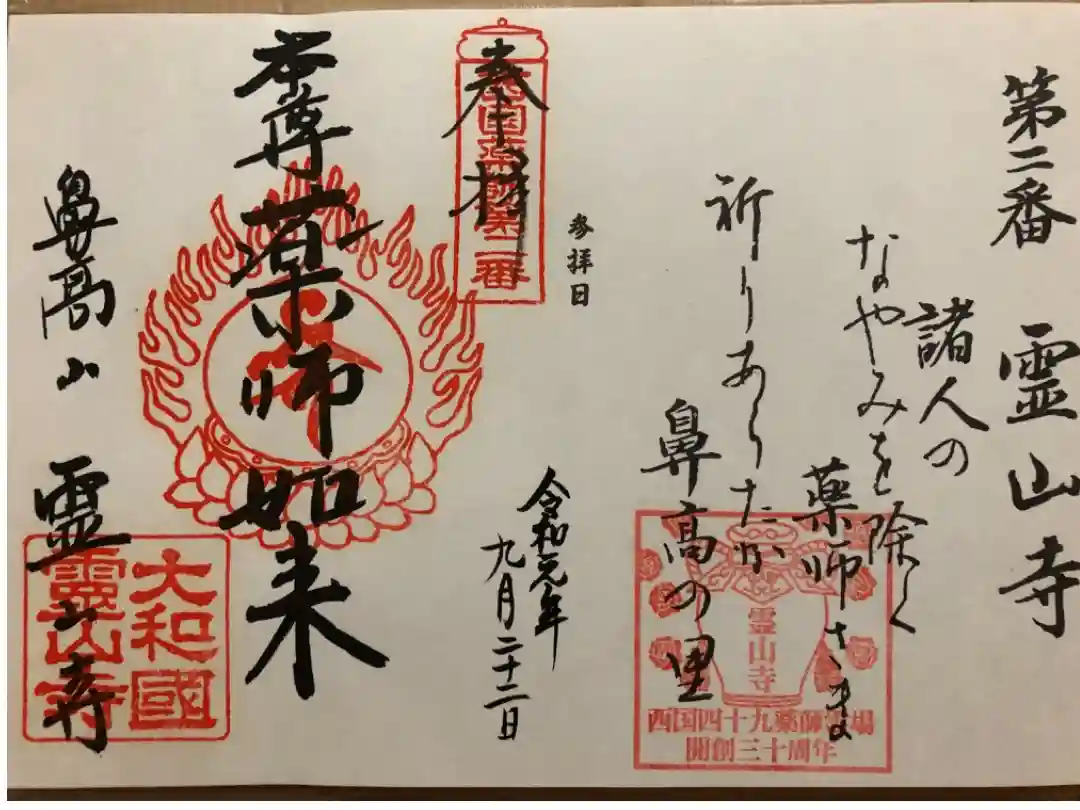 第二番 霊山寺
諸人の
なやみを除く
薬師さま
祈りあらたか
鼻高の里
霊山寺
西国四十九薬師霊場
開創三十周年
参拝日
令和元年
九月二十二日
奉拝
西国薬師第二番
本尊薬師如来
鼻高山 霊山寺
大和國
靈山寺